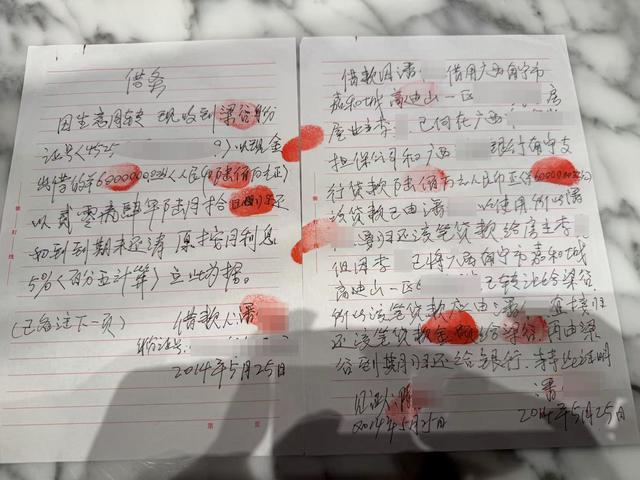 借条
因生意周转 现收到梁谷身份
证号(4525 9)以现金
出借的￥6000000.00(人民币陆佰万元正)
以贰零壹肆年陆月拾 日归还
如到到期未还清 愿按月利息
5%(百份五计算)立此为据。
(已备注下一页)
借款人:潘
身份证号:
2014年5月25日
借款因潘 借用广西南宁市
嘉和城高迪山一区 房
屋业主李 已向在广西
担保公司和广西 银行南宁支
行贷款陆佰万元人民币正(￥6000000.00)
该贷款已由潘 以使用 所以潘
要归还该笔贷款给房主李
但因李 已将广西南宁市嘉和城
高迪山一区 已转让给梁谷
所以该笔贷款应由潘 直接归
还该笔贷款金额给梁谷 再由梁
谷到期归还给银行. 特此证明
见证人:陈
潘
2014年5月25日
2014年5月25日